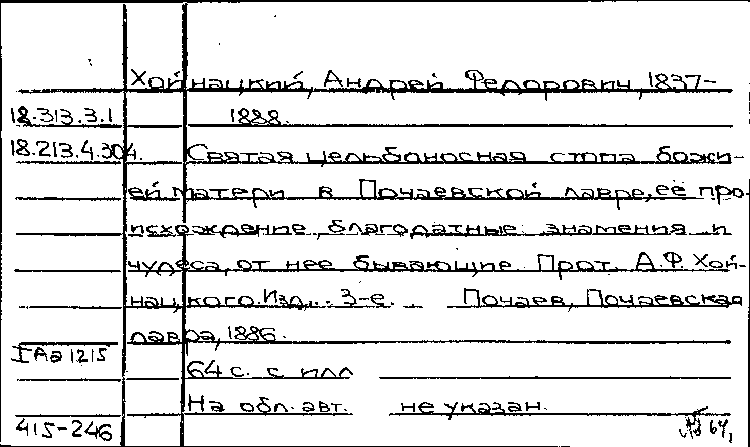 Хойнацкий, Андрей Федорович, 1837-
18.313.3.1 1888.
18.213.4.304. Святая цельбоносная стопа божи-
ей матери в Почаевской лавре, её про-
исхождение, благодатные знамения и
чудеса, от нее бывающие. Прот. А.Ф. Хой-
нацкого. Изд. 3-е. Почаев, Почаевская
лавра, 1886.
IАа1215
64 с. с илл
На обл. авт. не указан.
415-246